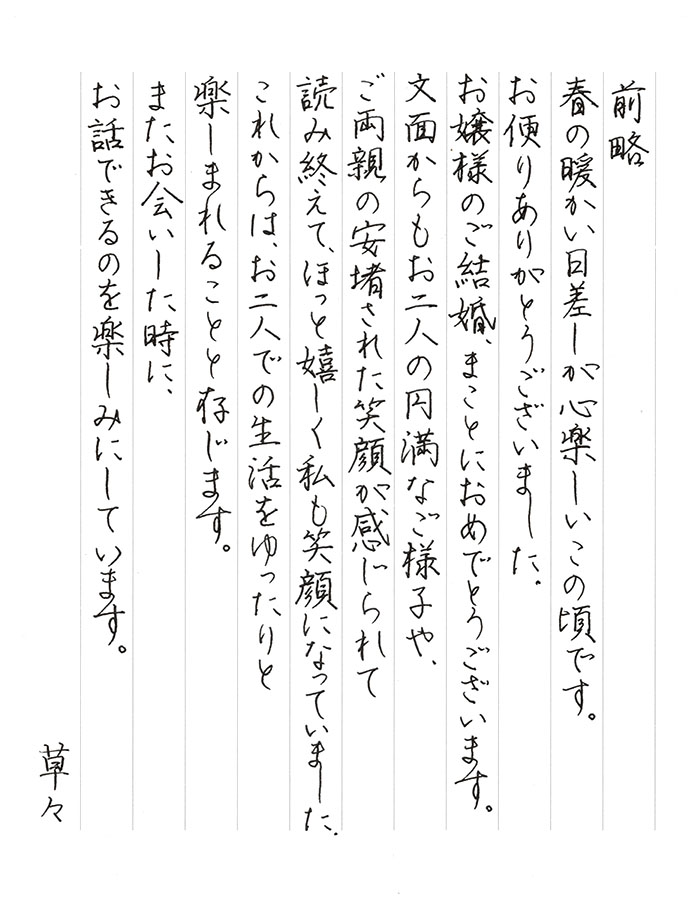 前略
春の暖かい日差しが心楽しいこの頃です。
お便りありがとうございました。
お嬢様のご結婚、まことにおめでとうございます。
文面からもお二人の円満なご様子や、
ご両親の安堵された笑顔が感じられて
読み終えて、ほっと嬉しく私も笑顔になっていました。
これからは、お二人での生活をゆったりと
楽しまれることと存じます。
またお会いした時に、
お話できるのを楽しみにしています。
草々